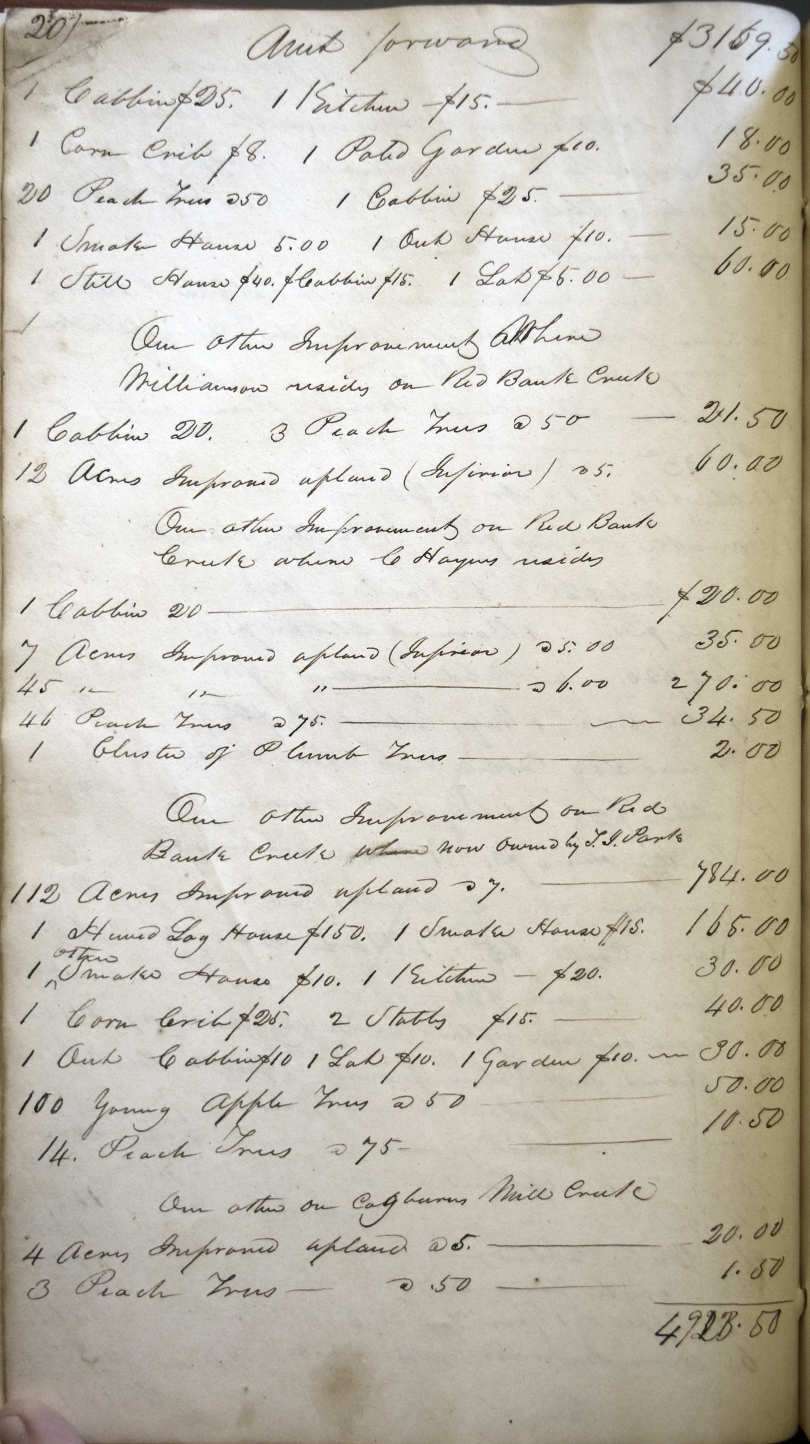 207
Amt forward $3169.50
1 Cabbin $25. 1 Kitchen $15. — $40.00
1 Corn Crib $8. 1 Paled Garden $10. 18.00
20 Peach Trees @ 50 1 Cabbin $25. — 35.00
1 Smoke House 5.00 1 Out House $10. — 15.00
1 Still House $40. 1 Cabbin $15. 1 Lot $5.00 — 60.00
1
One other Improvement Where
Williamson resides on Red Bank Creek
1 Cabbin 20. 3 Peach Trees @ 50 — 21.50
12 Acres Improved upland (Inferior) @ 5. 60.00
One other Improvement on Red Bank
Creek where C Hayns resides
1 Cabbin 20 — $20.00
7 Acres Improved upland (Inferior) @ 5.00 35.00
45 " " " — @ 6.00 270.00
46 Peach Trees @ 75. — 34.50
1 Cluster of Plumb Trees — 2.00
One other Improvement on Red
Bank Creek where now owned by T. J. Park
112 Acres Improved upland @ 7. — 784.00
1 Hewed Log House $150. 1 Smoke House $15. 165.00
1 other Smoke House $10. 1 Kitchen — $20. 30.00
1 Corn Crib $25. 2 Stables $15. — 40.00
1 Out Cabbin $10 1 Lot $10. 1 Garden $10. — 30.00
100 Young Apple Trees @ 50 — 50.00
14. Peach Trees @ 75 — 10.50
One other on Cogburns Mill Creek
4 Acres Improved upland @ 5. — 20.00
3 Peach Trees — @ .50 — 1.50
4923.50